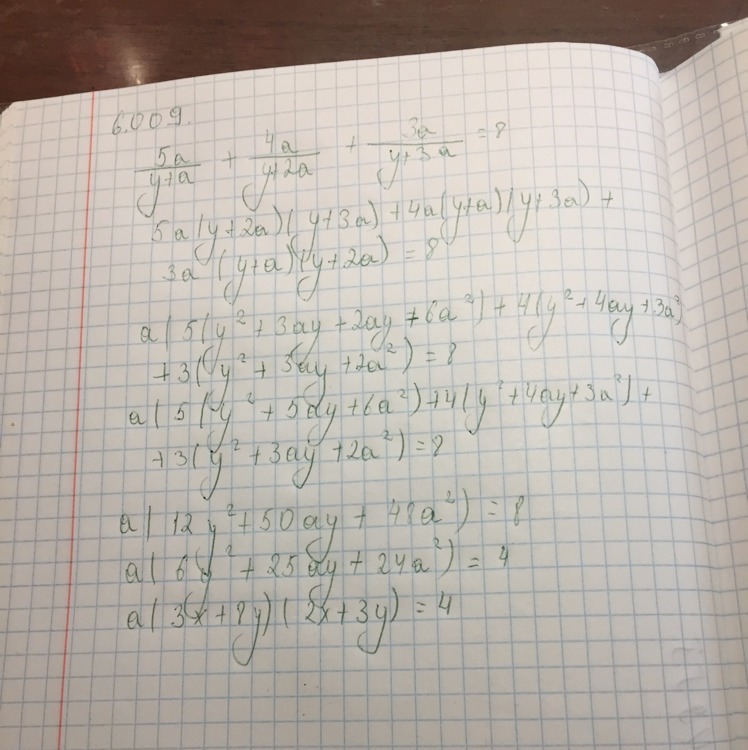 6.009.
5a/(y+a) + 4a/(y+2a) + 3a/(y+3a) = 8
5a(y+2a)(y+3a)+4a(y+a)(y+3a)+
3a(y+a)(y+2a) = 8
a(5(y²+3ay+2ay+6a²)+4(y²+4ay+3a²)
+3(y²+3ay+2a²) = 8
a(5(y²+5ay+6a²)+4(y²+4ay+3a²)+
+3(y²+3ay+2a²) = 8
a(12y²+50ay+48a²) = 8
a(6y²+25ay+24a²) = 4
a(3x+8y)(2x+3y) = 4